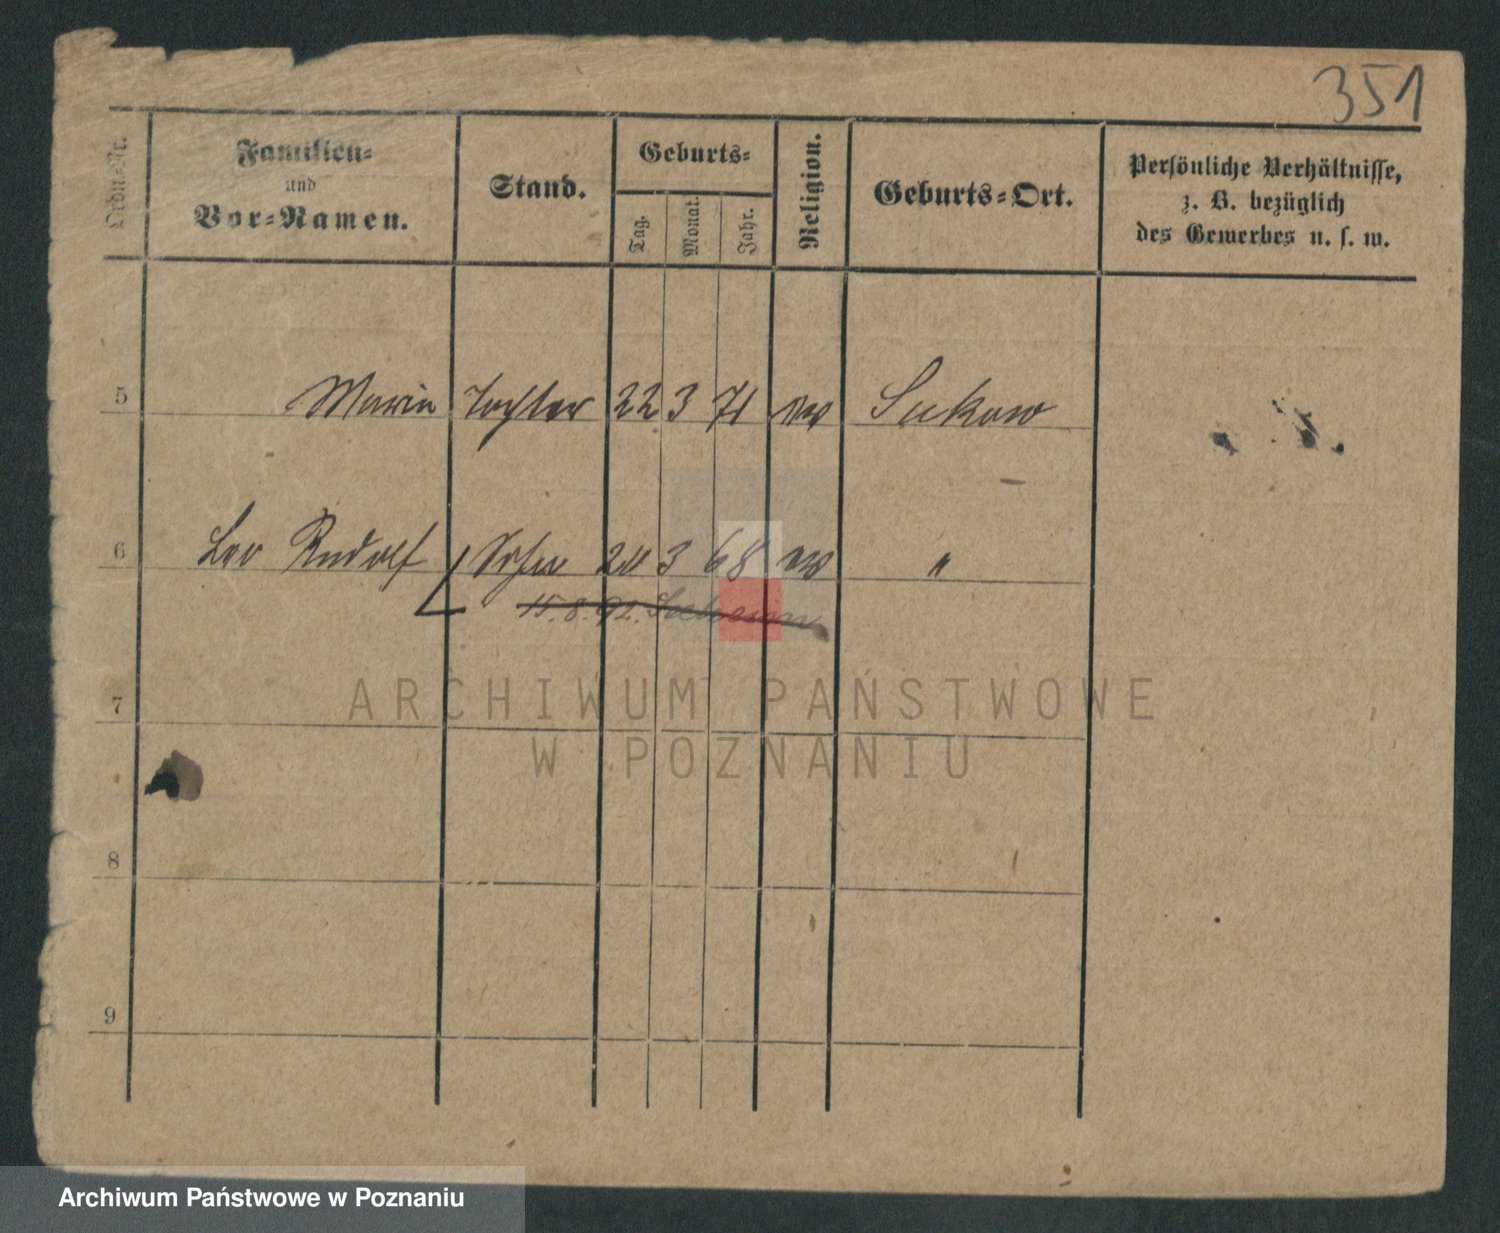 351
Ordn.-Nr.
Familien-
und
Vor-Namen.
Stand.
Geburts-
Tag.
Monat.
Jahr.
Religion.
Geburts-Ort.
Persönliche Verhältnisse,
z. B. bezüglich
des Gewerbes u. s. w.
5 Maria Tochter 22 3 71 Suckow
6 Leo Rudolf Sohn 20 3 68 "
15.8.92.
7
ARCHIWUM PAŃSTWOWE
W POZNANIU
8
9
Archiwum Państwowe w Poznaniu